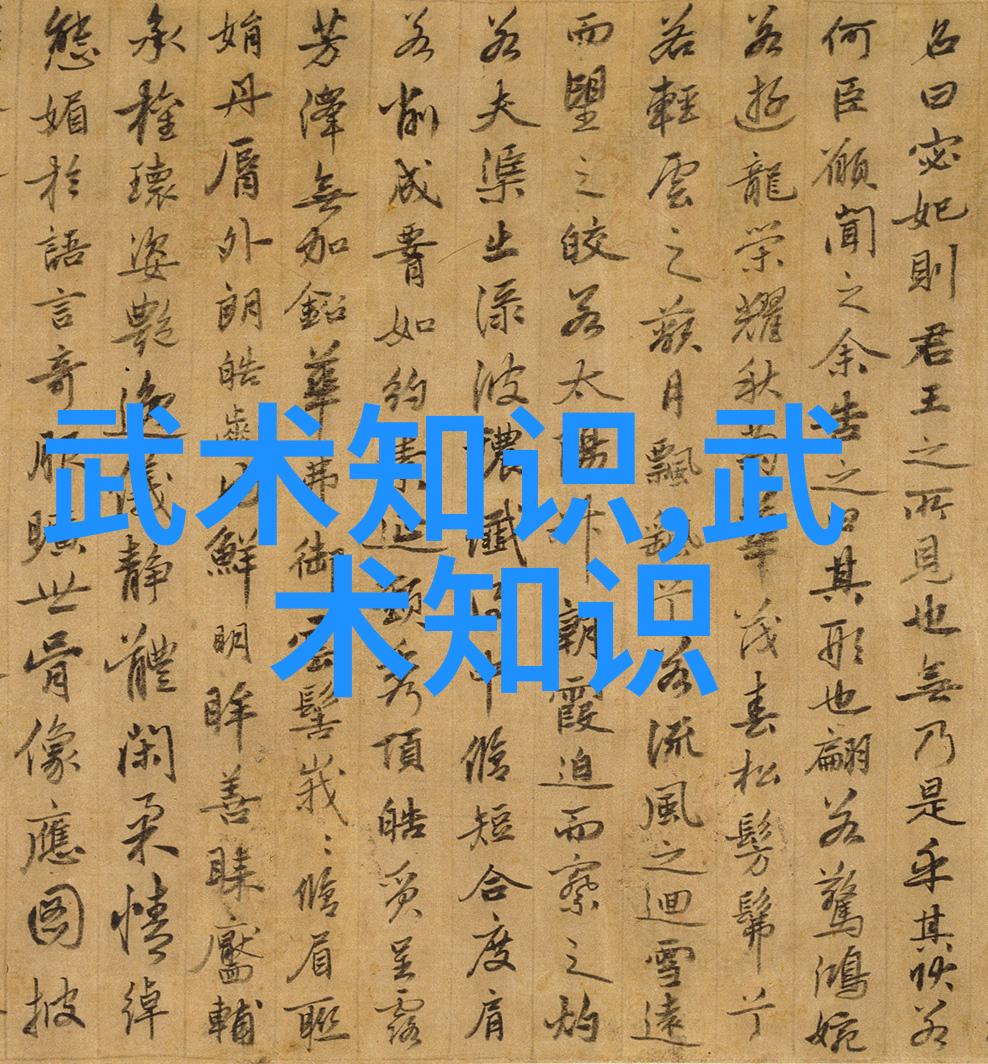 名曰宓妃則君王之所見也無乃是乎其狀若
何臣願聞之余告之曰其形也翩若驚鴻婉
若遊龍榮耀秋菊華茂春松髣髴兮
若輕雲之蔽月飄颻兮若流風之迴雪遠
而望之皎若太陽升朝霞迫而察之灼
若夫渠出淥波穠纖得中脩短合度肩
若削成腰如約素延頸秀項皓質呈露
芳澤無加鉛華弗御雲髻峩〻脩眉聯
娟丹脣外朗皓齒內鮮明眸善睞靨輔
承權瓌姿艷逸儀靜體閑柔情綽
態媚於語言奇服曠世骨像應圖披
武术知识,武
术知识